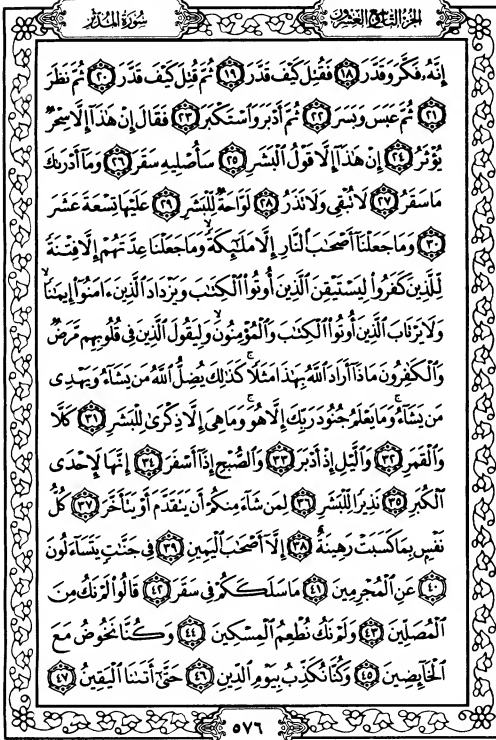 سُورَةُ المُدَّثِّرِ الجُزْءُ التَّاسِعُ وَالعِشْرُونَ
إِنَّهُۥ فَكَّرَ وَقَدَّرَ ١٨ فَقُتِلَ كَيْفَ قَدَّرَ ١٩ ثُمَّ قُتِلَ كَيْفَ قَدَّرَ ٢٠ ثُمَّ نَظَرَ
٢١ ثُمَّ عَبَسَ وَبَسَرَ ٢٢ ثُمَّ أَدْبَرَ وَٱسْتَكْبَرَ ٢٣ فَقَالَ إِنْ هَٰذَآ إِلَّا سِحْرٌ
يُؤْثَرُ ٢٤ إِنْ هَٰذَآ إِلَّا قَوْلُ ٱلْبَشَرِ ٢٥ سَأُصْلِيهِ سَقَرَ ٢٦ وَمَآ أَدْرَىٰكَ
مَا سَقَرُ ٢٧ لَا تُبْقِى وَلَا تَذَرُ ٢٨ لَوَّاحَةٌ لِّلْبَشَرِ ٢٩ عَلَيْهَا تِسْعَةَ عَشَرَ
٣٠ وَمَا جَعَلْنَآ أَصْحَٰبَ ٱلنَّارِ إِلَّا مَلَٰٓئِكَةً ۙ وَمَا جَعَلْنَا عِدَّتَهُمْ إِلَّا فِتْنَةً
لِّلَّذِينَ كَفَرُوا۟ لِيَسْتَيْقِنَ ٱلَّذِينَ أُوتُوا۟ ٱلْكِتَٰبَ وَيَزْدَادَ ٱلَّذِينَ ءَامَنُوٓا۟ إِيمَٰنًا ۙ
وَلَا يَرْتَابَ ٱلَّذِينَ أُوتُوا۟ ٱلْكِتَٰبَ وَٱلْمُؤْمِنُونَ ۙ وَلِيَقُولَ ٱلَّذِينَ فِى قُلُوبِهِم مَّرَضٌ
وَٱلْكَٰفِرُونَ مَاذَآ أَرَادَ ٱللَّهُ بِهَٰذَا مَثَلًا ۚ كَذَٰلِكَ يُضِلُّ ٱللَّهُ مَن يَشَآءُ وَيَهْدِى
مَن يَشَآءُ ۚ وَمَا يَعْلَمُ جُنُودَ رَبِّكَ إِلَّا هُوَ ۚ وَمَا هِىَ إِلَّا ذِكْرَىٰ لِلْبَشَرِ ٣١ كَلَّا
وَٱلْقَمَرِ ٣٢ وَٱلَّيْلِ إِذْ أَدْبَرَ ٣٣ وَٱلصُّبْحِ إِذَآ أَسْفَرَ ٣٤ إِنَّهَا لَإِحْدَى
ٱلْكُبَرِ ٣٥ نَذِيرًا لِّلْبَشَرِ ٣٦ لِمَن شَآءَ مِنكُمْ أَن يَتَقَدَّمَ أَوْ يَتَأَخَّرَ ٣٧ كُلُّ
نَفْسٍۭ بِمَا كَسَبَتْ رَهِينَةٌ ٣٨ إِلَّآ أَصْحَٰبَ ٱلْيَمِينِ ٣٩ فِى جَنَّٰتٍ يَتَسَآءَلُونَ
٤٠ عَنِ ٱلْمُجْرِمِينَ ٤١ مَا سَلَكَكُمْ فِى سَقَرَ ٤٢ قَالُوا۟ لَمْ نَكُ مِنَ
ٱلْمُصَلِّينَ ٤٣ وَلَمْ نَكُ نُطْعِمُ ٱلْمِسْكِينَ ٤٤ وَكُنَّا نَخُوضُ مَعَ
ٱلْخَآئِضِينَ ٤٥ وَكُنَّا نُكَذِّبُ بِيَوْمِ ٱلدِّينِ ٤٦ حَتَّىٰٓ أَتَىٰنَا ٱلْيَقِينُ ٤٧
٥٧٦